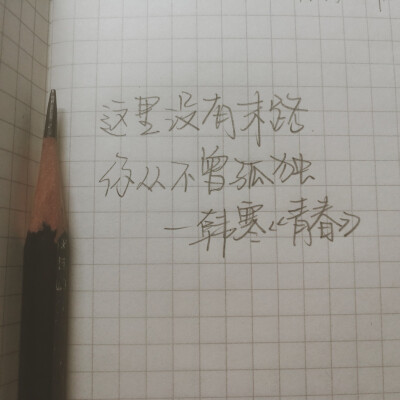 这里没有末路
你从不曾孤独
—韩寒《青春》